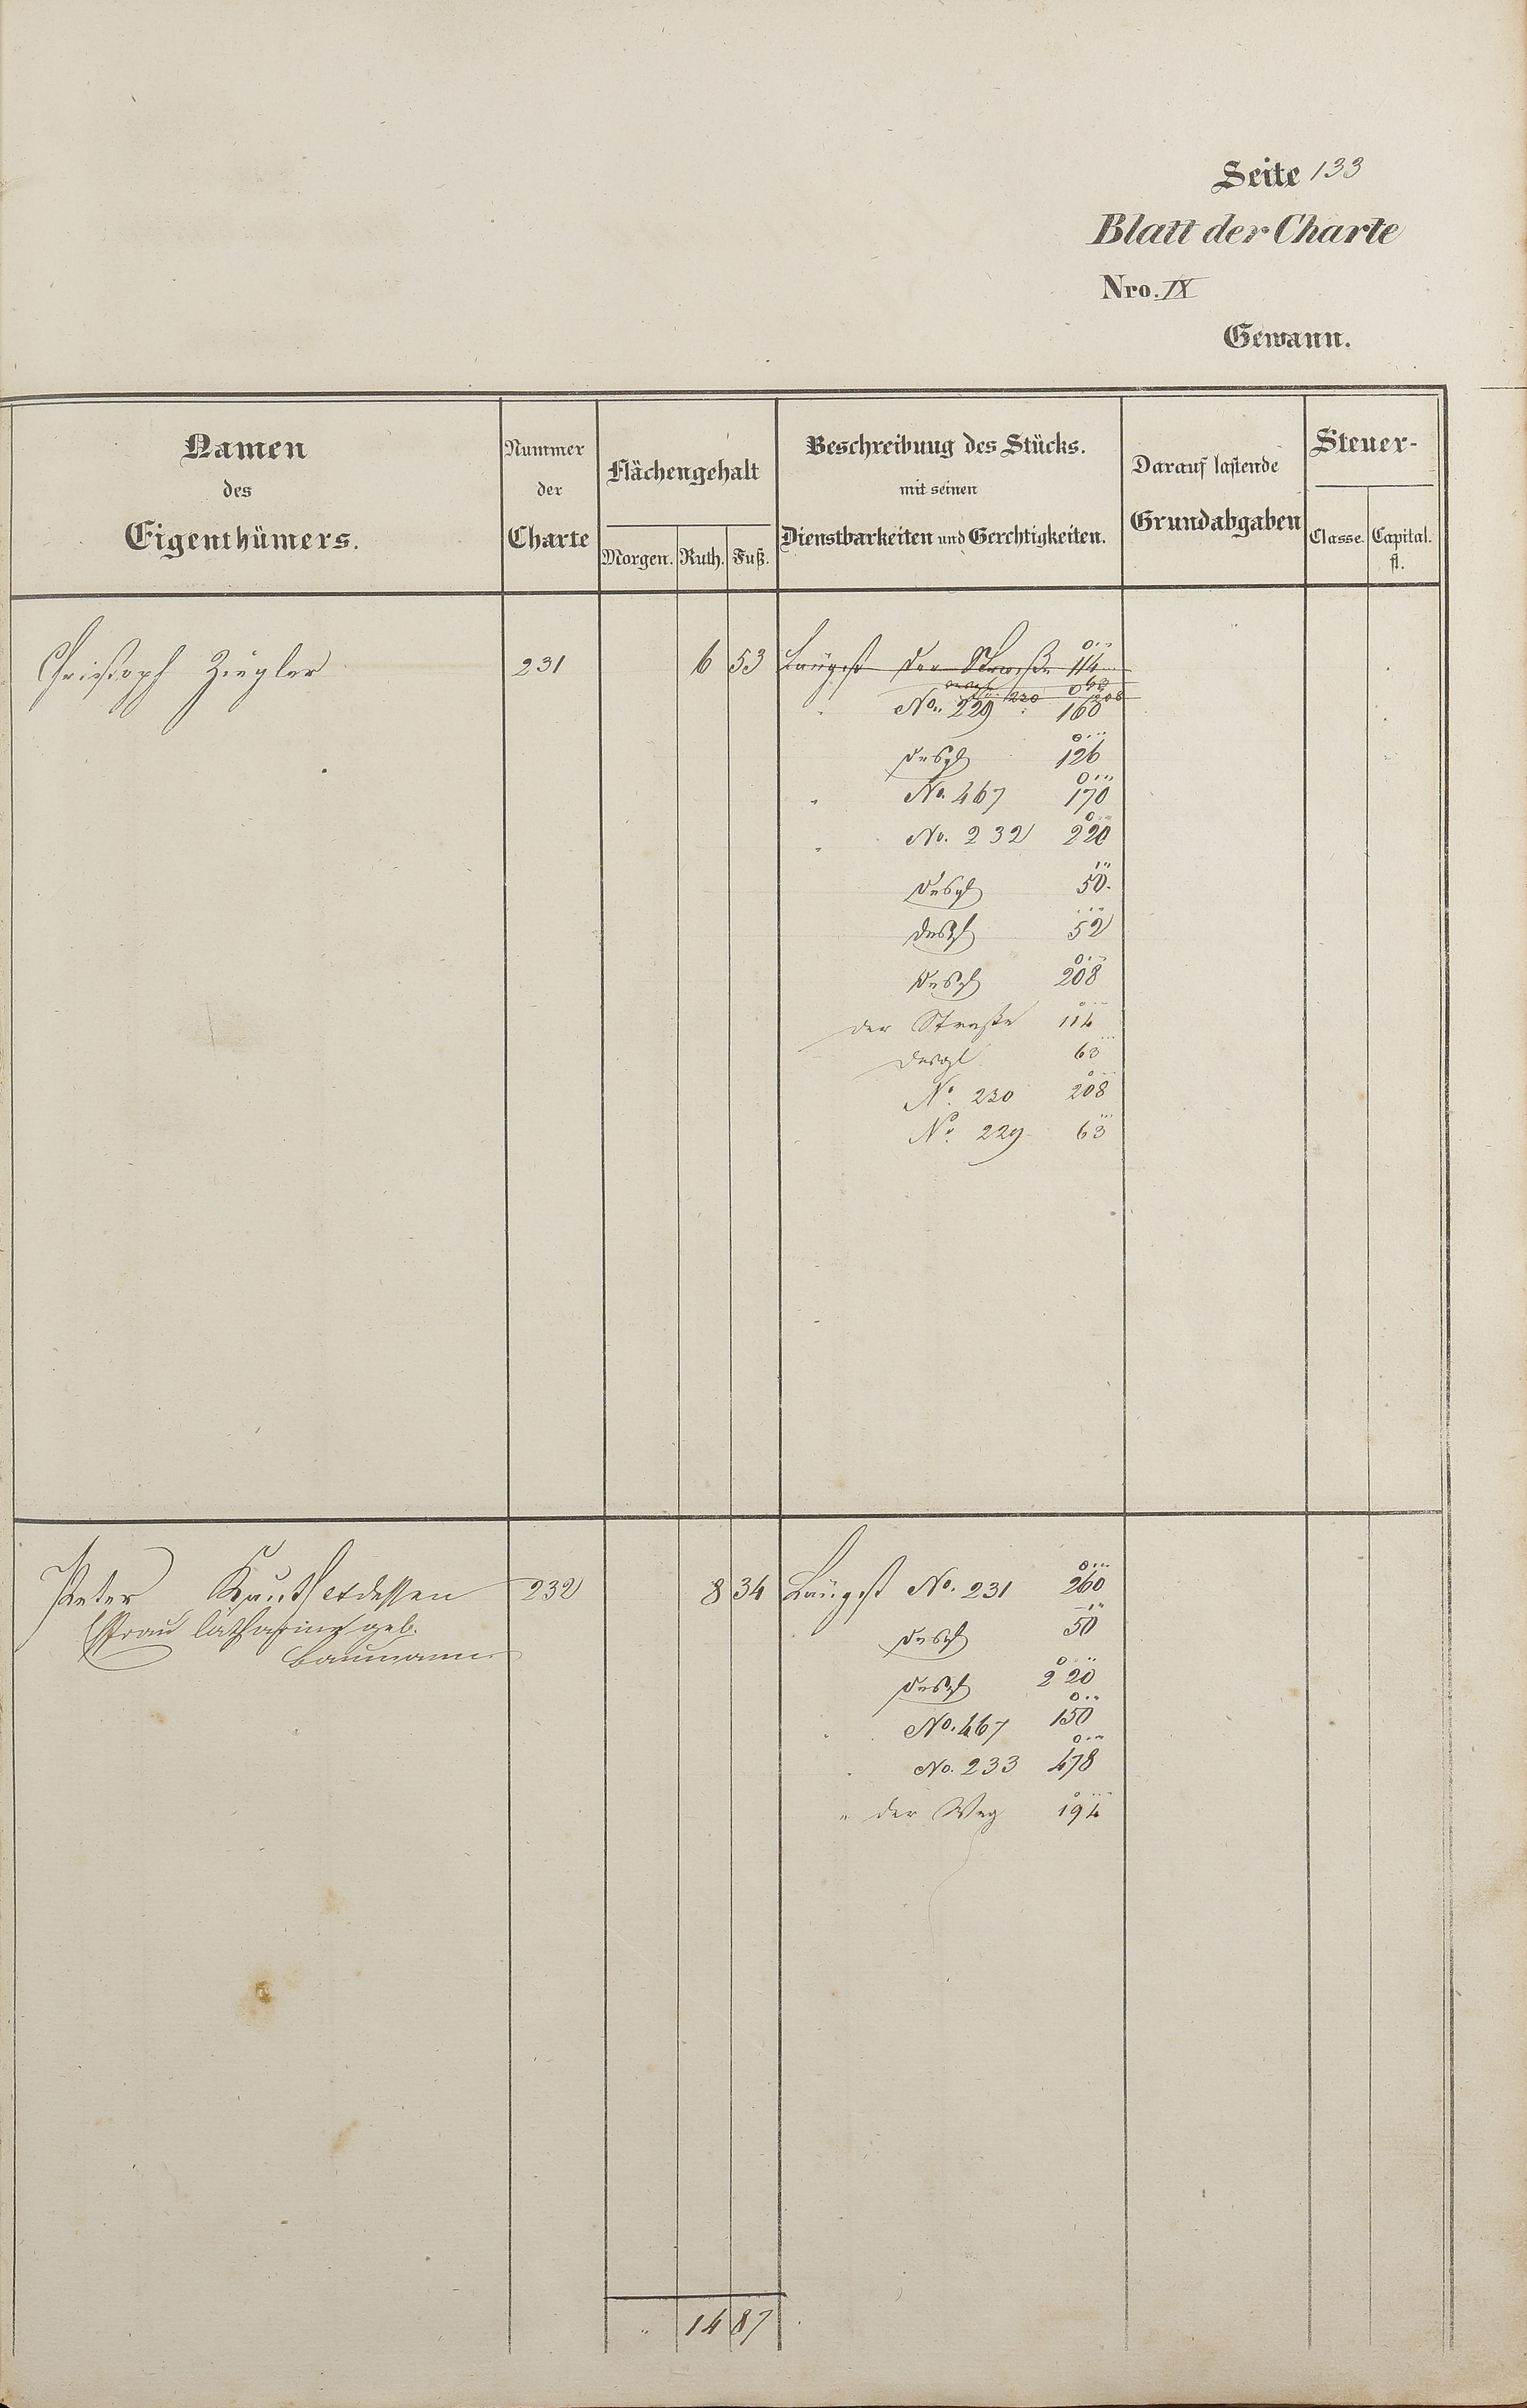 Seite 133
Blatt der Charte
Nro. IX
Gewann.
Namen des Eigenthümers.
Nummer der Charte
Flächengehalt
Morgen. Ruth. Fuß.
Beschreibung des Stücks.
mit seinen
Dienstbarkeiten und Gerechtigkeiten.
Darauf lastende
Grundabgaben
Steuer-
Classe. Capital.
fl.
Christoph Ziegler 231 6 53 Längst der Straße 114
230 208
" No. 229 160
desgl 126
" No. 467 170
" No. 232 220
desgl 50
desgl 52
desgl 208
der Straße 114
desgl 63
No. 230 208
No. 229 63
Peter Kauth et dessen 232 8 34 Längst No. 231 260
Frau Catharine geb.
Baumann
desgl 50
desgl 220
" No. 467 150
" No. 233 478
" der Weg 194
" 14 87